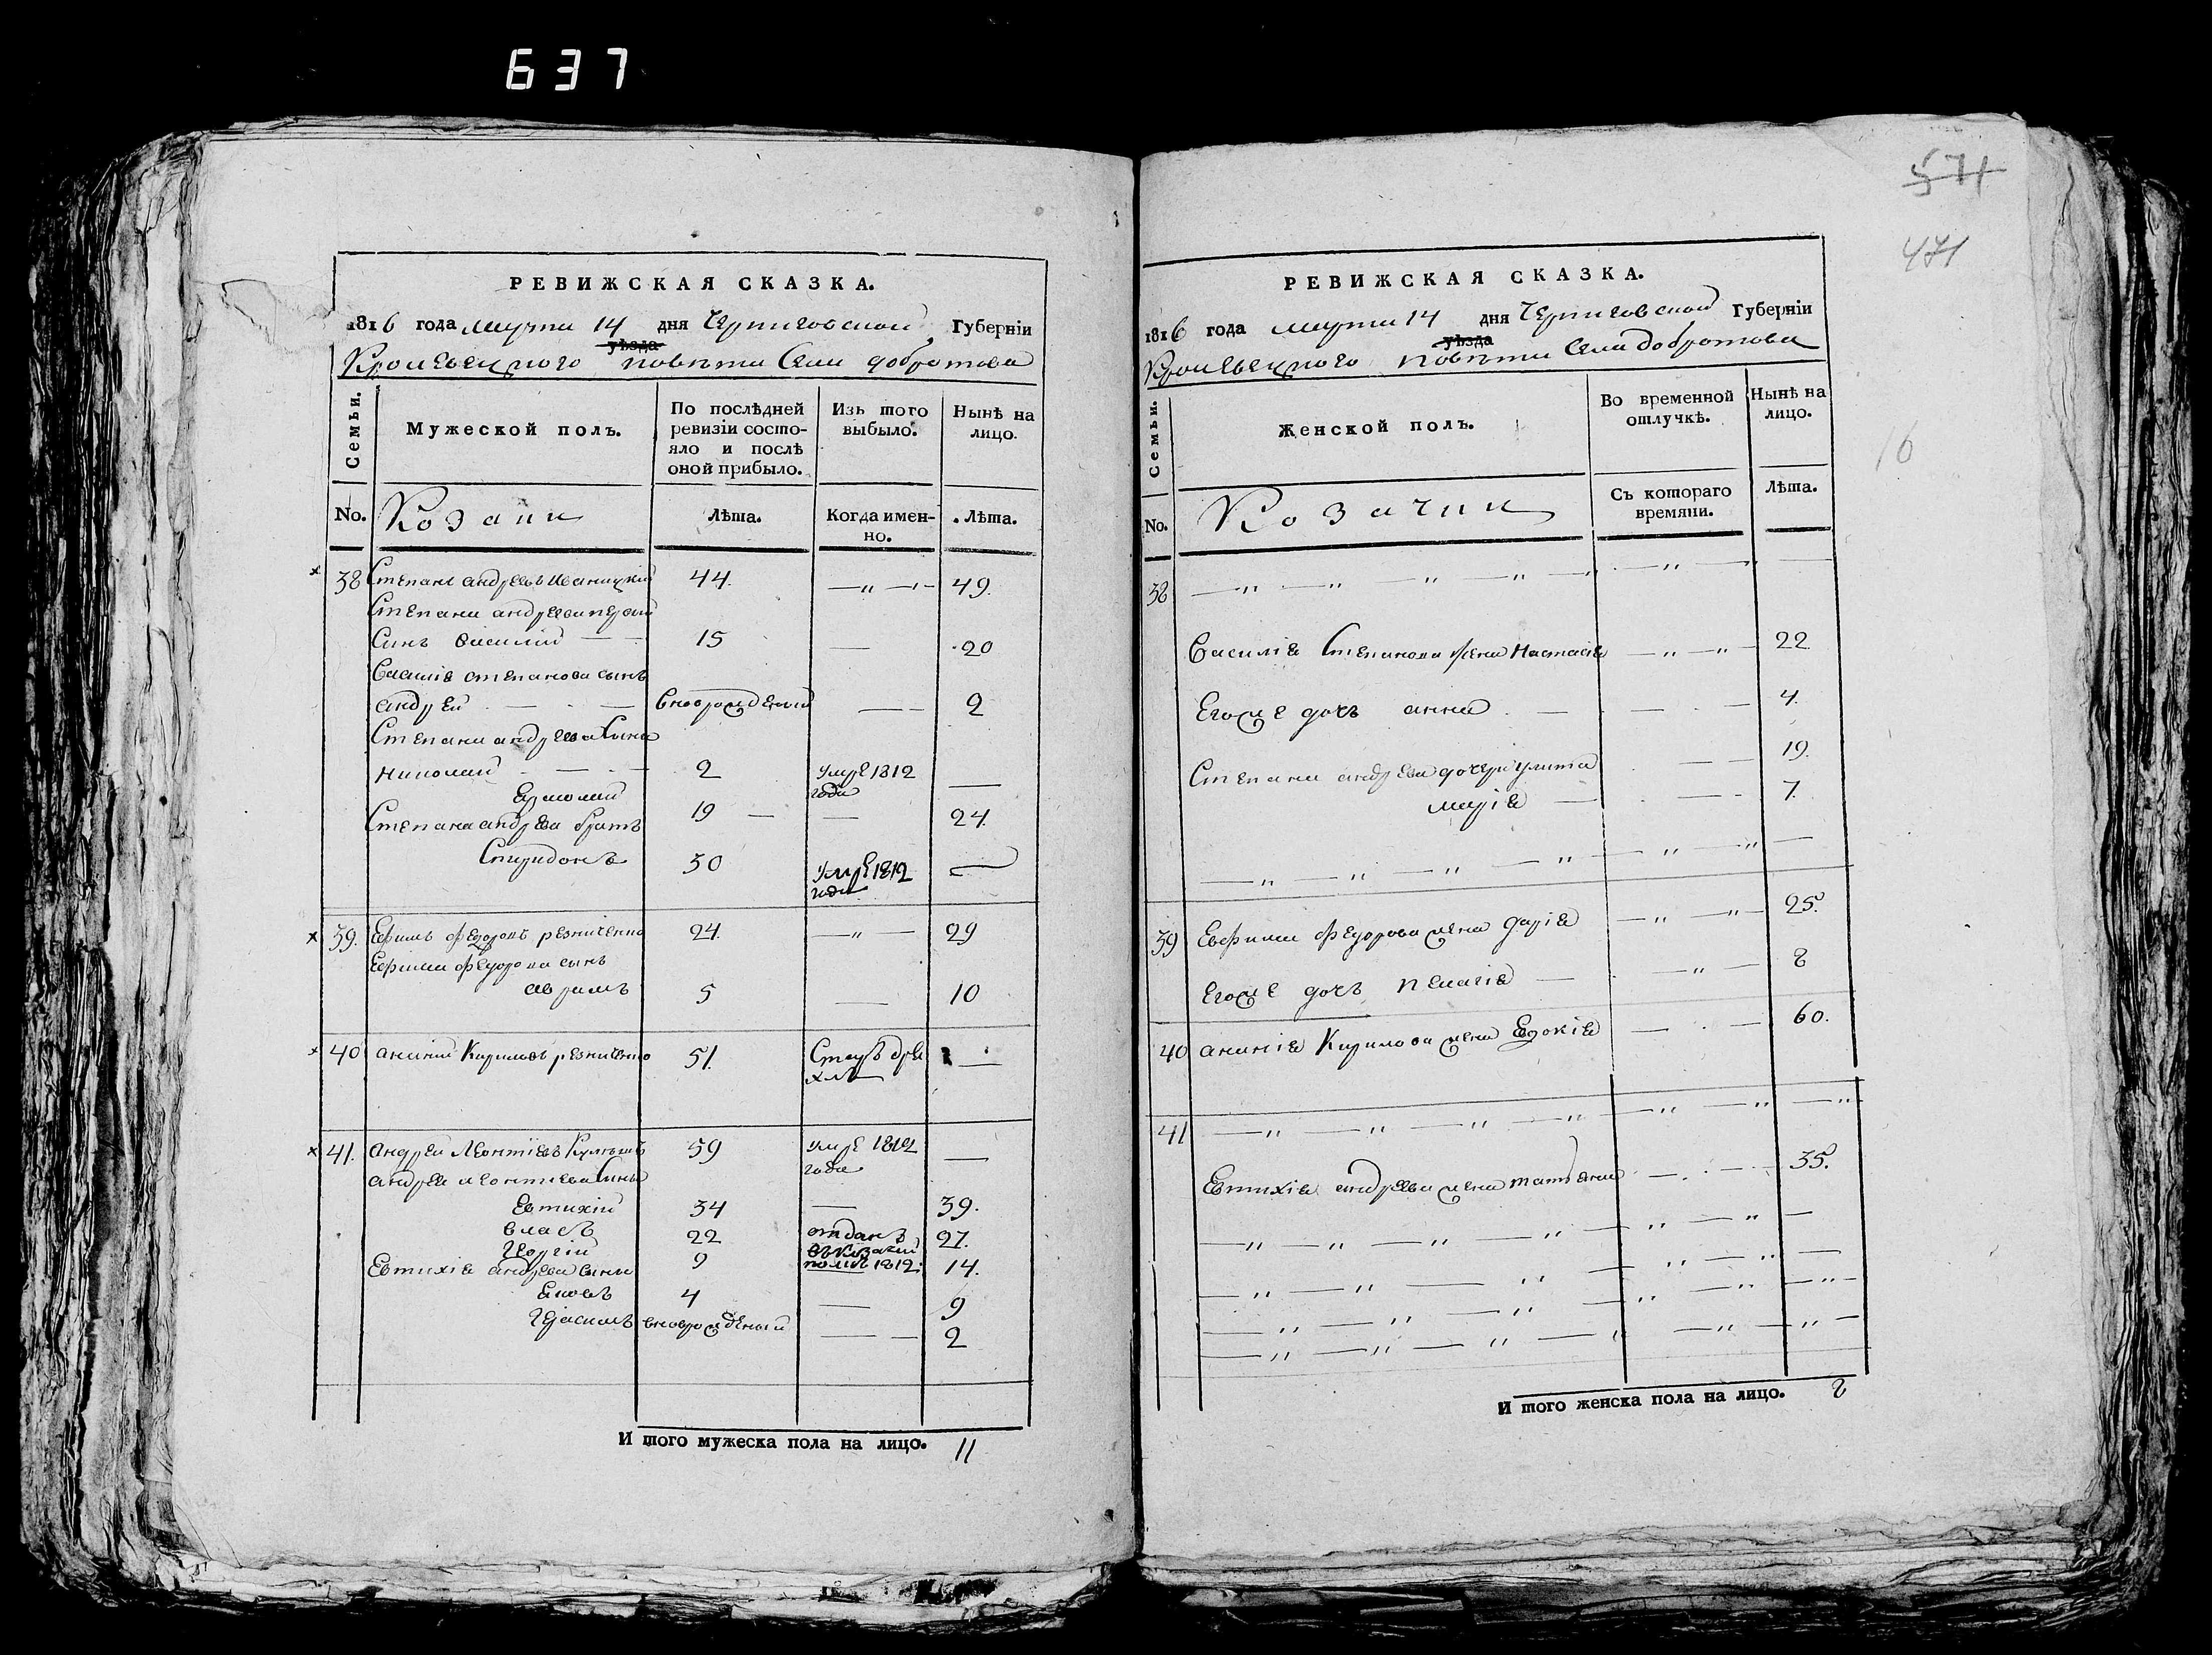 637
574
471
16
РЕВИЖСКАЯ СКАЗКА.
1816 года марта 14 дня Черниговской Губерніи
уѣзда
Кролевецкого повѣта Села Добротова
Семьи.
Мужеской полъ.
По послѣдней ревизіи состо-
яло и послѣ
оной прибыло.
Изъ того
выбыло.
Нынѣ на
лицо.
No.
Козаки
Лѣта.
Когда имен-
но.
Лѣта.
38 Степанъ андреевъ Иваницкій 44. 49.
Степана андреева первой
Синъ василий 15 20
Василія степанова сынъ
андрей вноврожденый 2
Степана андреева Сыны
николай 2 умре 1812
года
Ермолай 19 24.
Степана андреева братъ
Спиридонъ 30 умре 1812
года
39. Ефимъ федоровъ резниченко 24. 29
Ефима федорова сынъ
аврамъ 5 10
40 ананий Кирилов резниченко 51. Старъ дре
хлъ
41. Андрей Леонтіевъ 59 умре 1812
года
андрея леонтиева Сыны
Евтихій 34 39.
власъ 22 отданъ 27.
въ козачій
полкъ 1812
Георгій 9 14.
Евтихія андреева сыны
Яковъ 4 9
Герасимъ вноврожденый 2
И того мужеска пола на лицо. 11
РЕВИЖСКАЯ СКАЗКА.
1816 года марта 14 дня Черниговской Губерніи
уѣзда
Кролевецкого повѣта Села Добротова
Семьи.
Женской полъ.
Во временной
отлучкѣ.
Нынѣ на
лицо.
No.
Козачки
Съ котораго
времяни.
Лѣта.
38
Василія Степанова жена Настасія 22
Егоже дочь анна 4.
Степана андреева дочери улита 19.
марія 7.
39 Евфима федорова жена дарія 25.
Егоже дочь пелагія 8
40 ананія Кирилова жена Евдокія 60.
41
Евтихія андреева жена татяна 35.
И того женска пола на лицо. 8